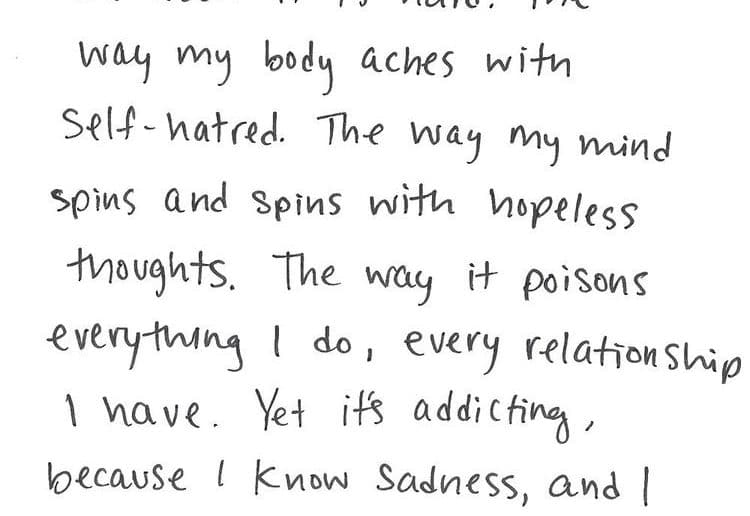 way my body aches with
self-hatred. The way my mind
spins and spins with hopeless
thoughts. The way it poisons
everything I do, every relationship
I have. Yet it's addicting,
because I know sadness, and I